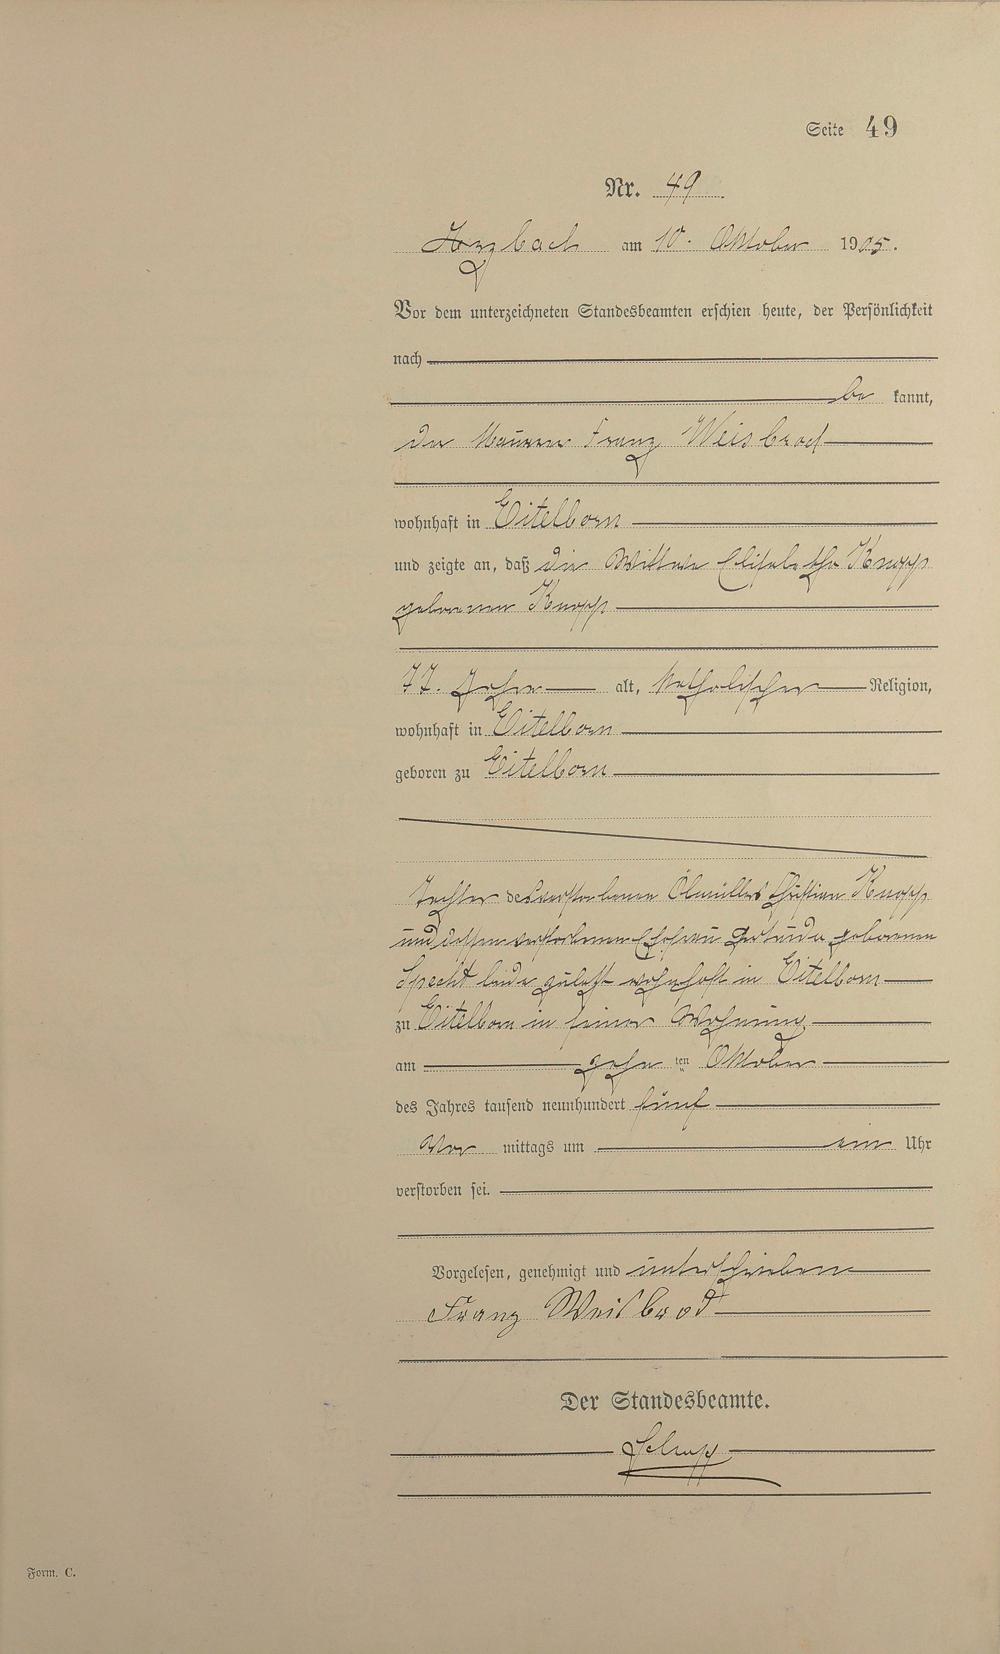 Seite 49
Nr. 49
am 10. Oktober 1905.
Vor dem unterzeichneten Standesbeamten erschien heute, der Persönlichkeit
nach
be kannt,
der Maurer Franz Weisbrod
wohnhaft in Eitelborn
und zeigte an, daß die Wittwe Elisabetha Knopp
geborenen Knopp
77. Jahre alt, katholischer Religion,
wohnhaft in Eitelborn
geboren zu Eitelborn
Tochter des verstorbenen Ölmüllers Christian Knopp
und dessen verstorbenen Ehefrau Gertruda geborenen
Specht beide zuletzt wohnhaft in Eitelborn
zu Eitelborn in seiner Wohnung
am zehn ten Oktober
des Jahres tausend neunhundert fünf
Vor mittags um ein Uhr
verstorben sei.
Vorgelesen, genehmigt und unterschrieben
Franz Weisbrod
Der Standesbeamte.
Form. C.